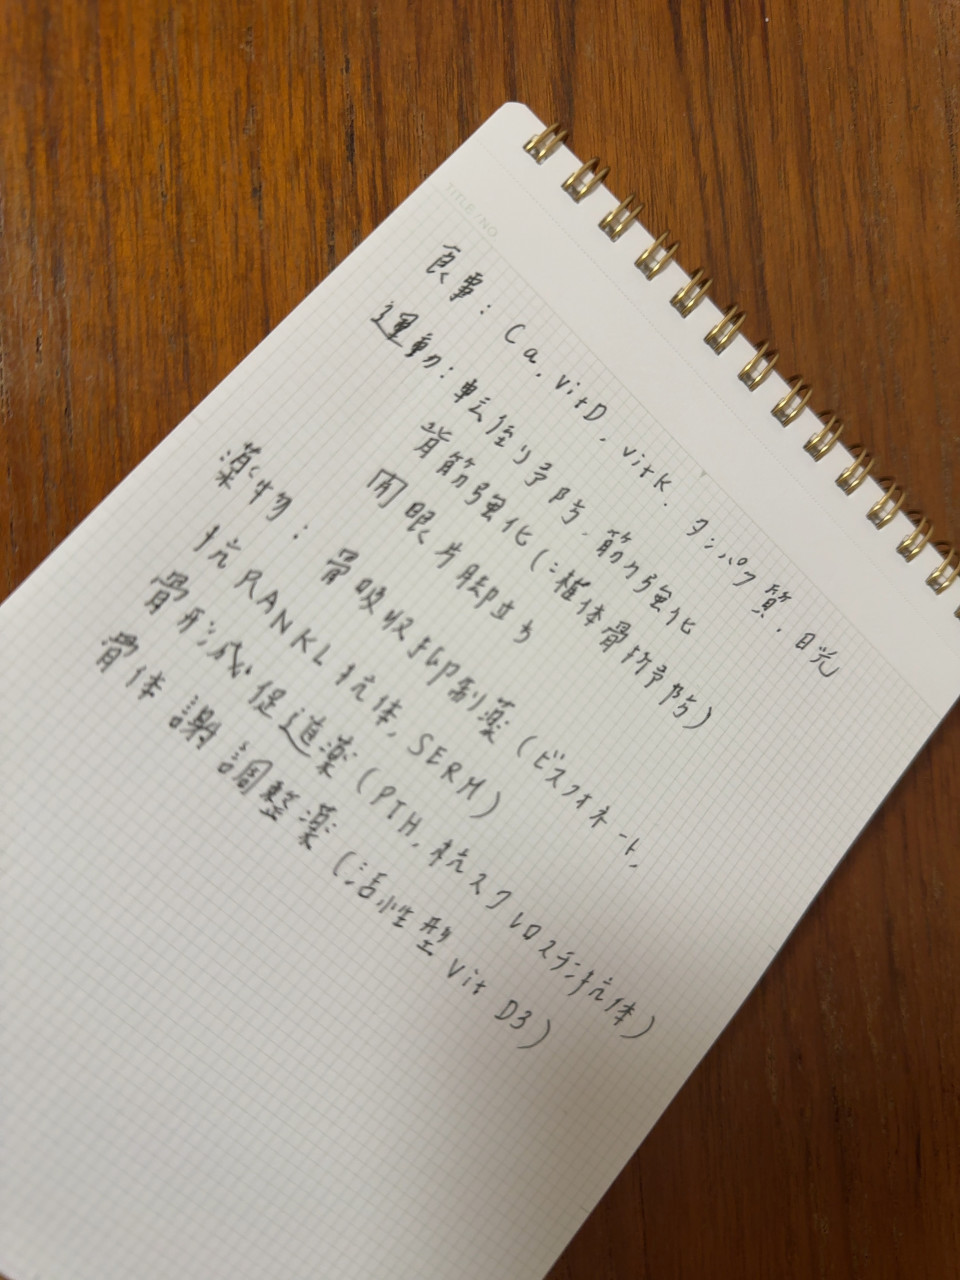 TITLE / NO.
食事: Ca. vitD. vitK. タンパク質. 日光
運動: 転倒予防. 筋力強化
背筋強化(椎体骨折予防)
開眼片脚立ち
薬物: 骨吸収抑制薬(ビスフォネート,
抗RANKL抗体, SERM)
骨形成促進薬(PTH, 抗スクレロスチン抗体)
骨体謝調整薬(活性型vit D3)